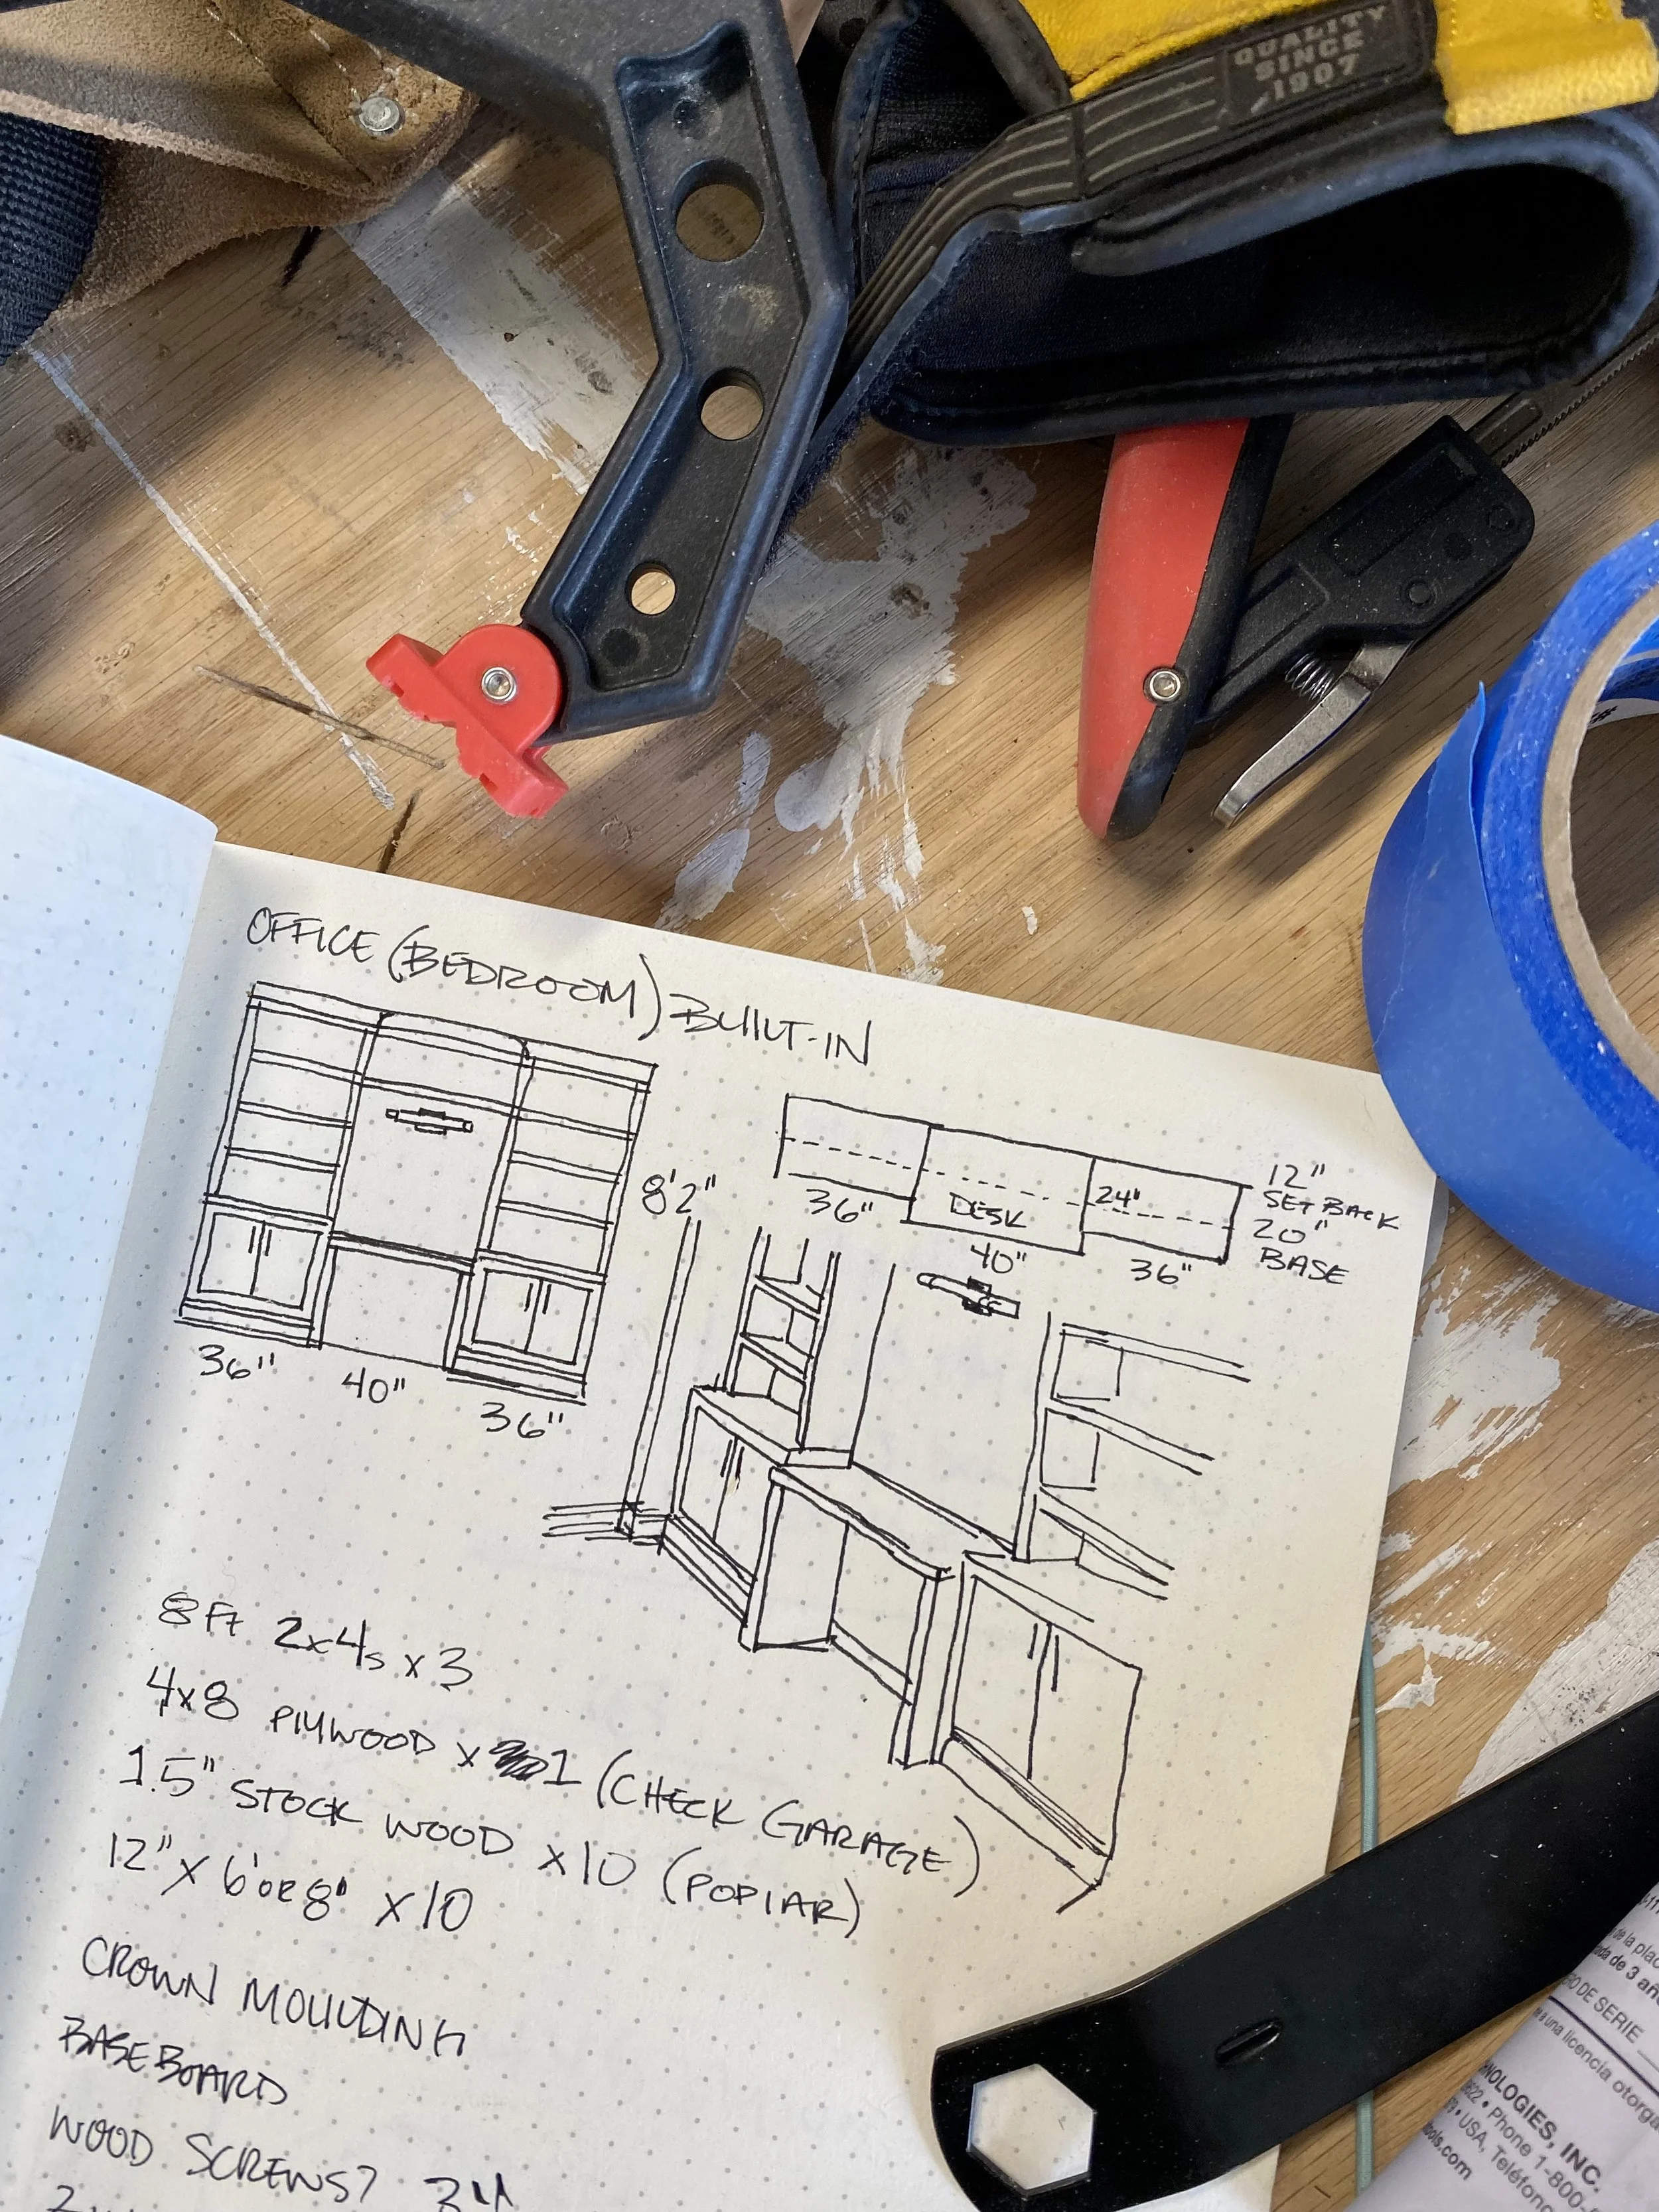 QUALITY
SINCE
1907
OFFICE (BEDROOM) BUILT-IN
8'2"
36"
40"
36"
36"
DESK
24"
40"
36"
12"
SET BACK
20"
BASE
8 Ft 2x4s x 3
4x8 PLYWOOD x 1 (CHECK GARAGE)
1.5" STOCK WOOD x10 (POPLAR)
12" x 6' or 8' x 10
CROWN MOULDING
BASEBOARD
WOOD SCREWS?
de la plac
de 3 año
DE SERIE
una licencia otorga
NOLOGIES, INC.
Phone 1-800-
USA, Teléfono
ools.com